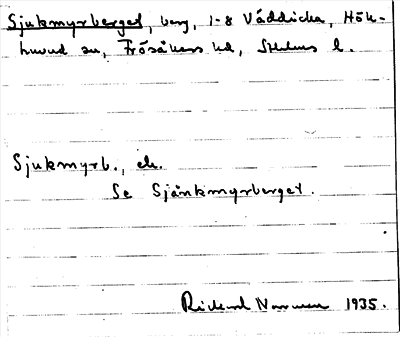 Sjukmyrberget, berg, 1-8 Väddicka, Hök-
huvud sn, Frösåkers hd, Sthlms l.
Sjukmyrb., ek.
Se Sjänkmyrberget.
Rickard 1935.